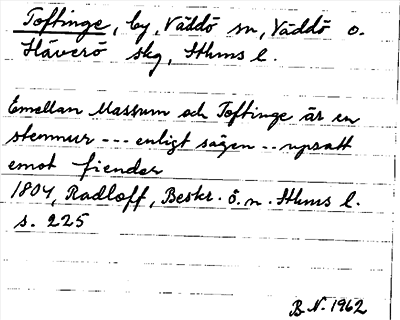 Toftinge, by, Väddö sn, Väddö o.
Häverö skg, Sthms l.
Emellan Massum och Toftinge är en
stenmur --- enligt sägen -- upsatt
emot fiender
1804, Radloff, Beskr. ö. n. Sthms l.
s. 225
B.N. 1962